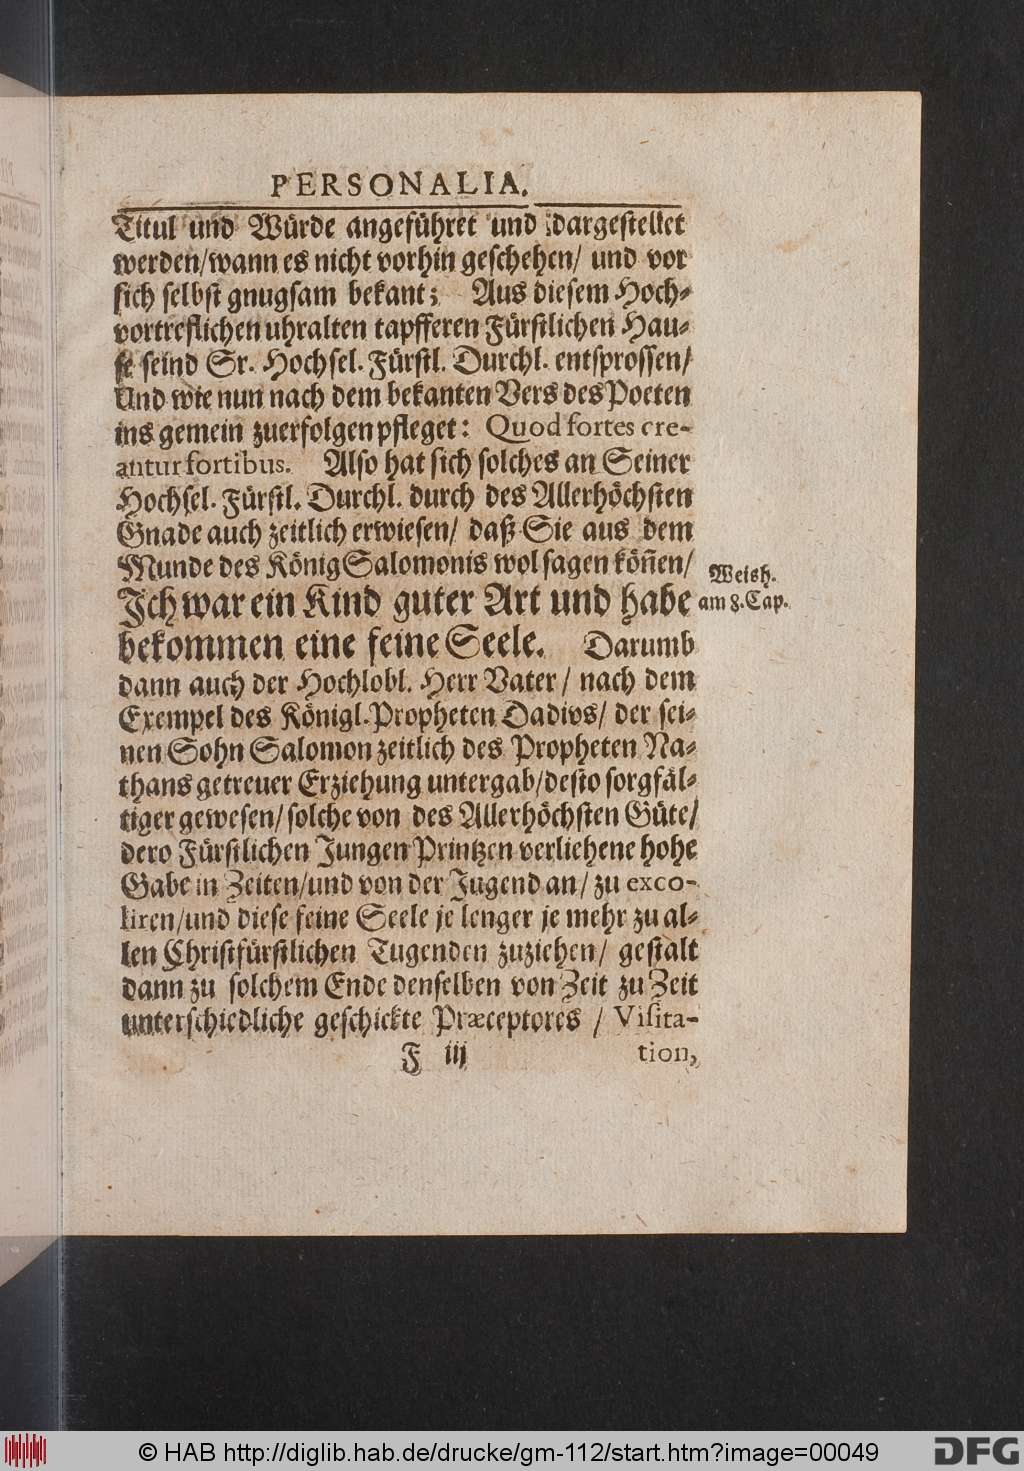 PERSONALIA.
Titul und Würde angeführet und dargestellet
werden/wann es nicht vorhin geschehen/ und vor
sich selbst gnugsam bekant; Aus diesem Hoch-
vortreflichen uhralten tapfferen Fürstlichen Hau-
se seind Sr. Hochsel. Fürstl. Durchl. entsprossen/
Und wie nun nach dem bekanten Vers des Poeten
ins gemein zuerfolgen pfleget: Quod fortes cre-
antur fortibus. Also hat sich solches an Seiner
Hochsel. Fürstl. Durchl. durch des Allerhöchsten
Gnade auch zeitlich erwiesen/ daß Sie aus dem
Munde des König Salomonis wol sagen köñen/
Ich war ein Kind guter Art und habe
bekommen eine feine Seele. Darumb
Weish.
am 8. Cap.
dann auch der Hochlobl. Herr Vater / nach dem
Exempel des Königl. Propheten Dadivs/ der sei-
nen Sohn Salomon zeitlich des Propheten Na-
thans getreuer Erziehung untergab/desto sorgfäl-
tiger gewesen/solche von des Allerhöchsten Güte/
dero Fürstlichen Jungen Printzen verliehene hohe
Gabe in Zeiten/und von der Jugend an/ zu exco-
liren/und diese feine Seele je lenger je mehr zu al-
len Christfürstlichen Tugenden zuziehen/ gestalt
dann zu solchem Ende denselben von Zeit zu Zeit
unterschiedliche geschickte Præceptores / Visita-
F iij tion,
© HAB http://diglib.hab.de/drucke/gm-112/start.htm?image=00049
DFG